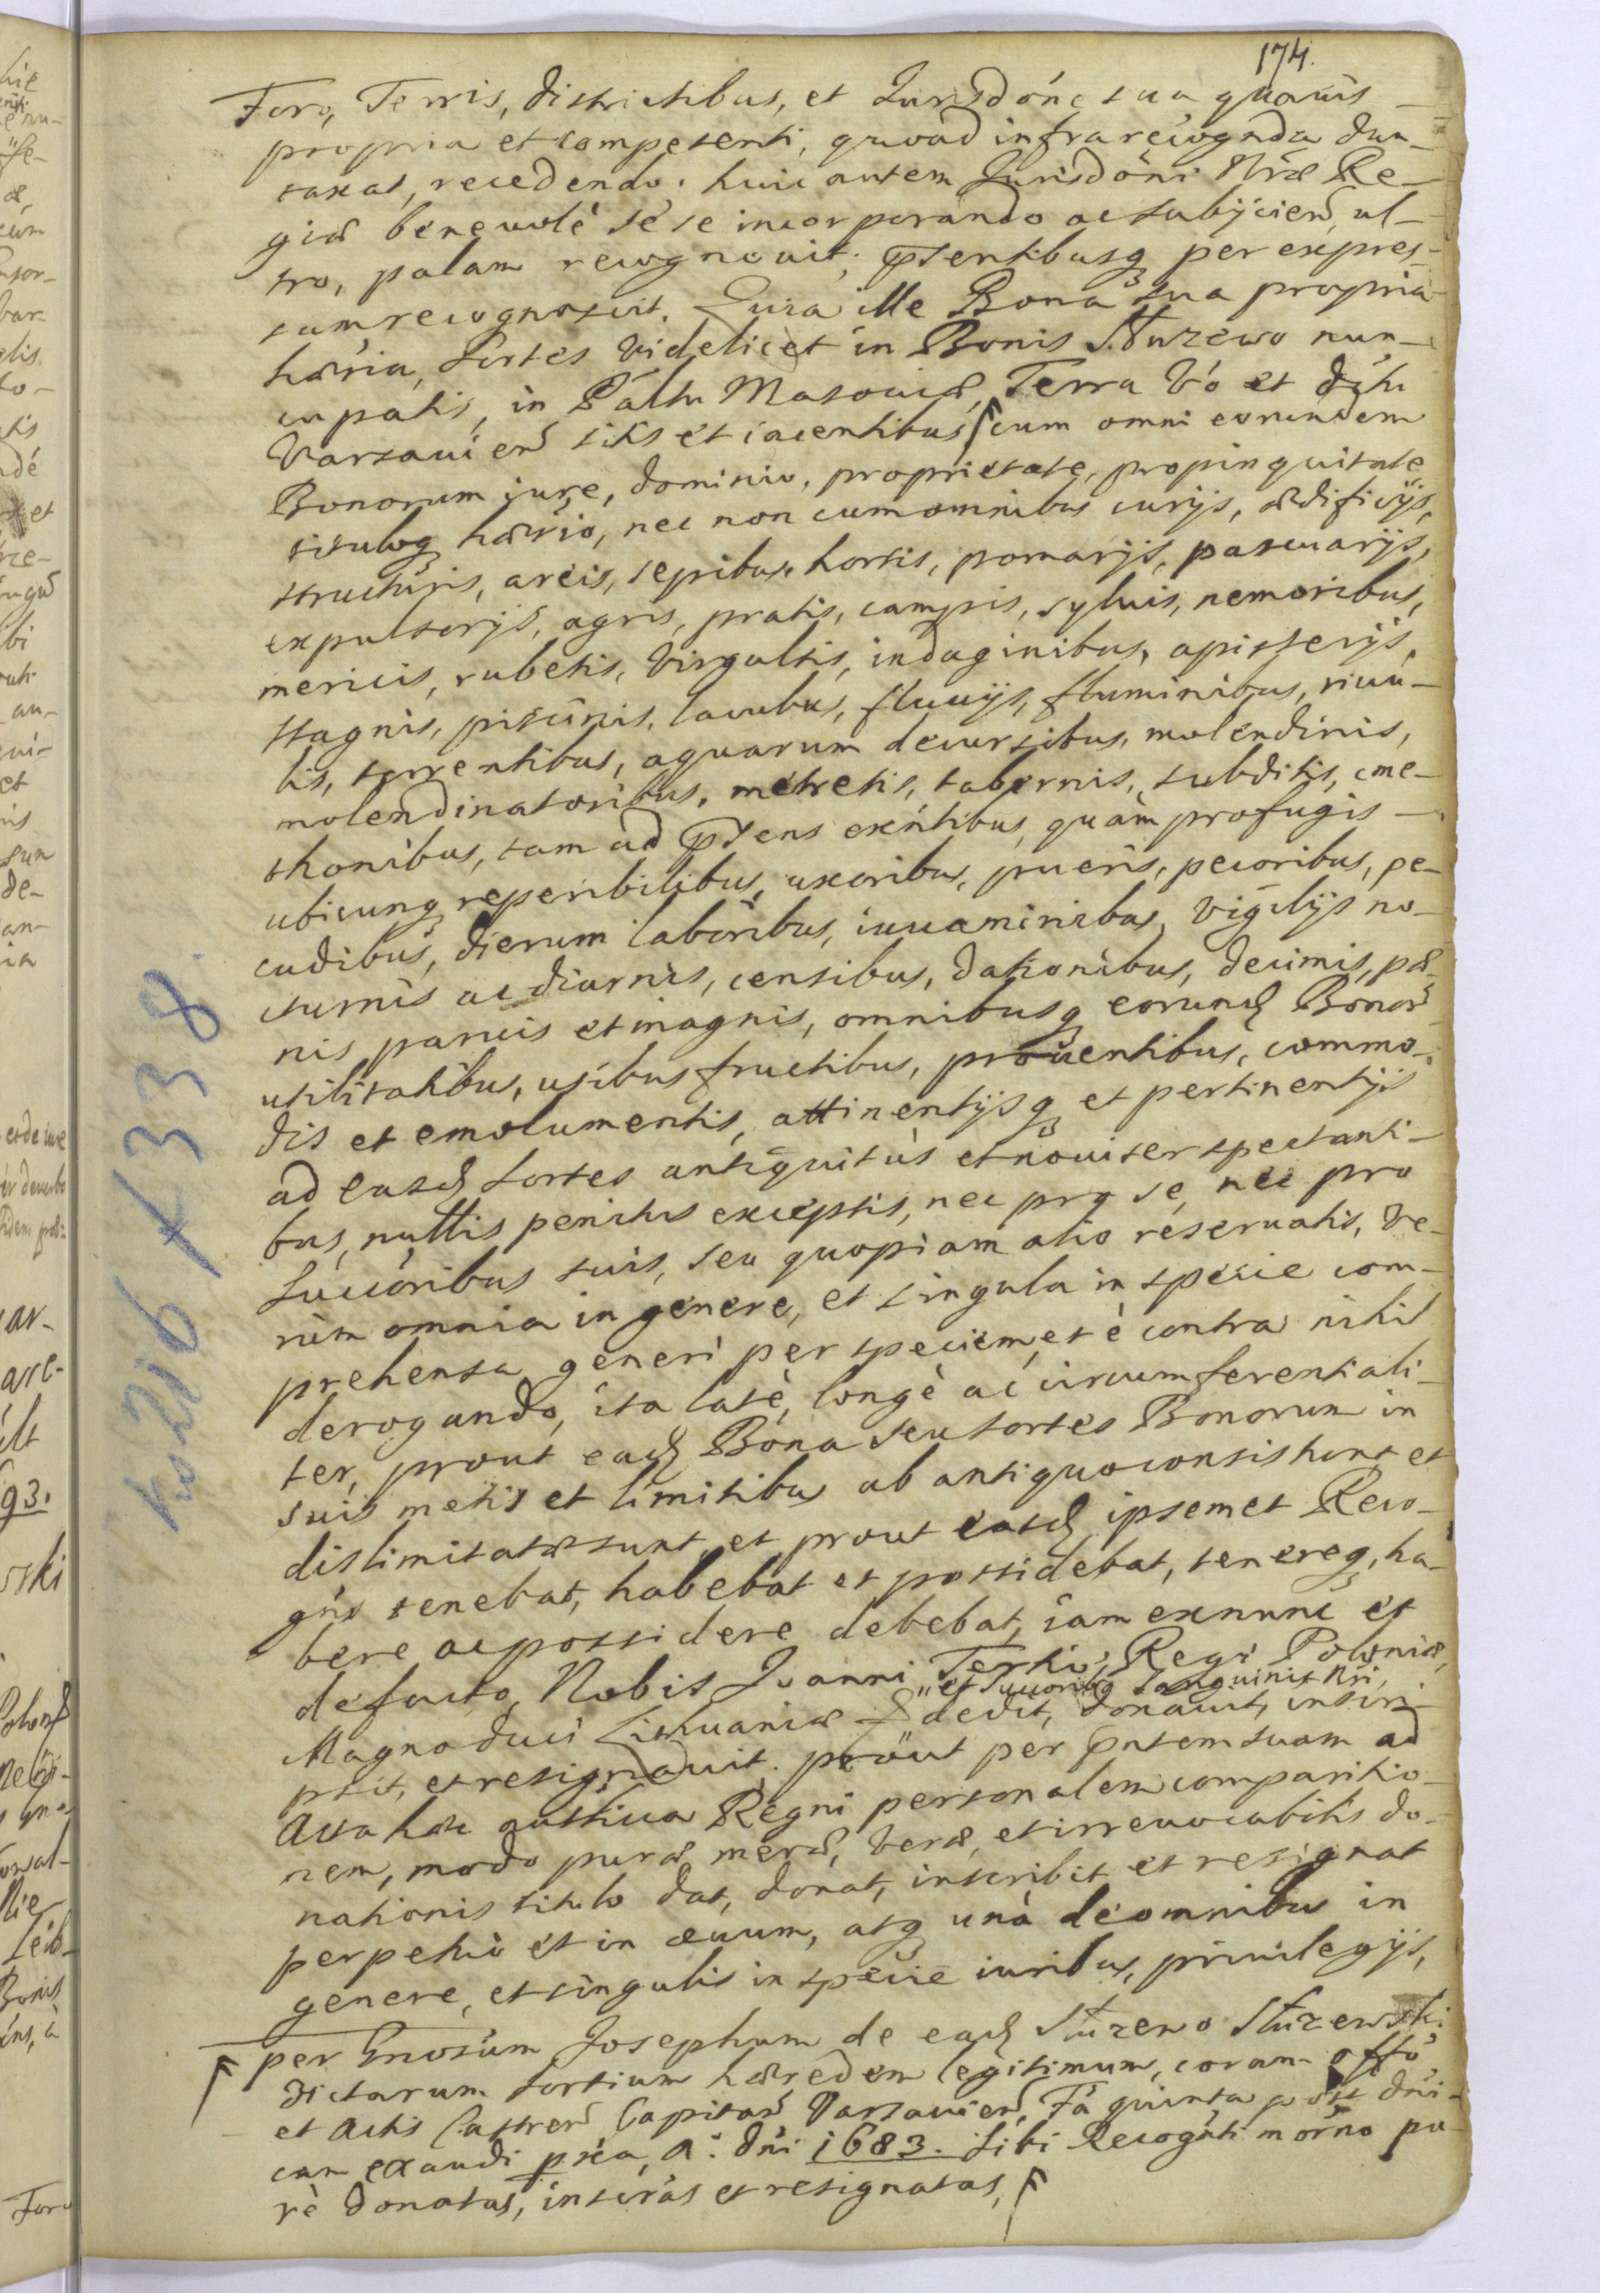 174.
Foro, Terris, districtibus, et Jurisdóne sua quavis
propria et competenti, quoad infrarecognda dun-
taxat, recedendo. huic autem Jurisdóni Nrae Re-
giae benevolè sé se incorporando ac subijcien, ul-
tro, palam recognovit, pntibusq per expres-
sum recognoscit. Quia ille Bona sua propria
haeria, sortes videlicet in Bonis Służewo nun-
cupatis, in Páltu Masoviae, Terra Vó et dictu
Varsavien sitis et iacentibus cum omni eorundem
Bonorum iure, dominio, proprietate, propinquitate
tituloq haerio, nec non cum omnibus curijs, aedificijs,
structuris, areis, sepibus, hortis, pomarijs, pascuarijs,
expulsorijs, agris, pratis, campis, sylvis, nemoribus,
mericis, rubetis, virgultis, indaginibus, apisterijs,
stagnis, piscinis, lacubus, fluvijs, fluminibus, rivu-
lis, torrentibus, aquarum decursibus, molendinis,
molendinatoribus, metretis, tabernis, subditis, cme-
thonibus, tam ad pntens exntibus, quàm profugis
ubicunq reperibilibus, uxoribus, pueris, pecoribus, pe-
cudibus, dierum laboribus, iuvaminibus, vigilijs no-
cturnis ac diurnis, censibus, dationibus, decimis, pae-
nis parvis et magnis, omnibusq eorund Bonor
utilitatibus, usibus fructibus, proventibus, commo-
dis et emolumentis, attinentijsq et pertinentijs
ad easd sortes antiquitùs et noviter spectanti-
bus, nullis penitus exceptis, nec pro se, nec pro
succoribus suis, seu quopiam alio reservatis, Ve-
rum omnia in genere, et singula in specie com-
prehensa generi per speciem, et è contra nihil
derogando, ita latè, longè ac circumferentiali-
ter, prout ead Bona seu sortes Bonorum in
suis metis et limitibus ab antiquo consistunt et
dislimitatae sunt, et prout easd ipsemet Reco-
gns tenebat, habebat et possidebat, tenereq, ha-
bere ac possidere debebat, iam exnunc et
defacto, Nobis Joanni Tertio, Regi Poloniae,
"et succoribq sanguinis Nri,
Magno duci Lithuaniae dedit, donavit, inscri-
psit, et resignavit. prout per pntem suam ad
Acta haec authica Regni personalem comparitio-
nem, modo purae, merae, verae, et irrevocabilis do-
nationis titulo dat, donat, inscribit et resignat
perpetuò et in aevum, atq unà de omnibus in
genere, et singulis in specie iuribus, privilegijs,
per Gnosum Josephum de ead Służewo Służewski
dictarum sortium haeredem legitimum, coram offo
et Actis Castren Capitan Varsavien, Fa quinta post dni-
cam exaudi pxa, A: dni 1683. sibi Recognti mórno pu-
rè donatas, inscras et resignatas,
No 216 f 338.